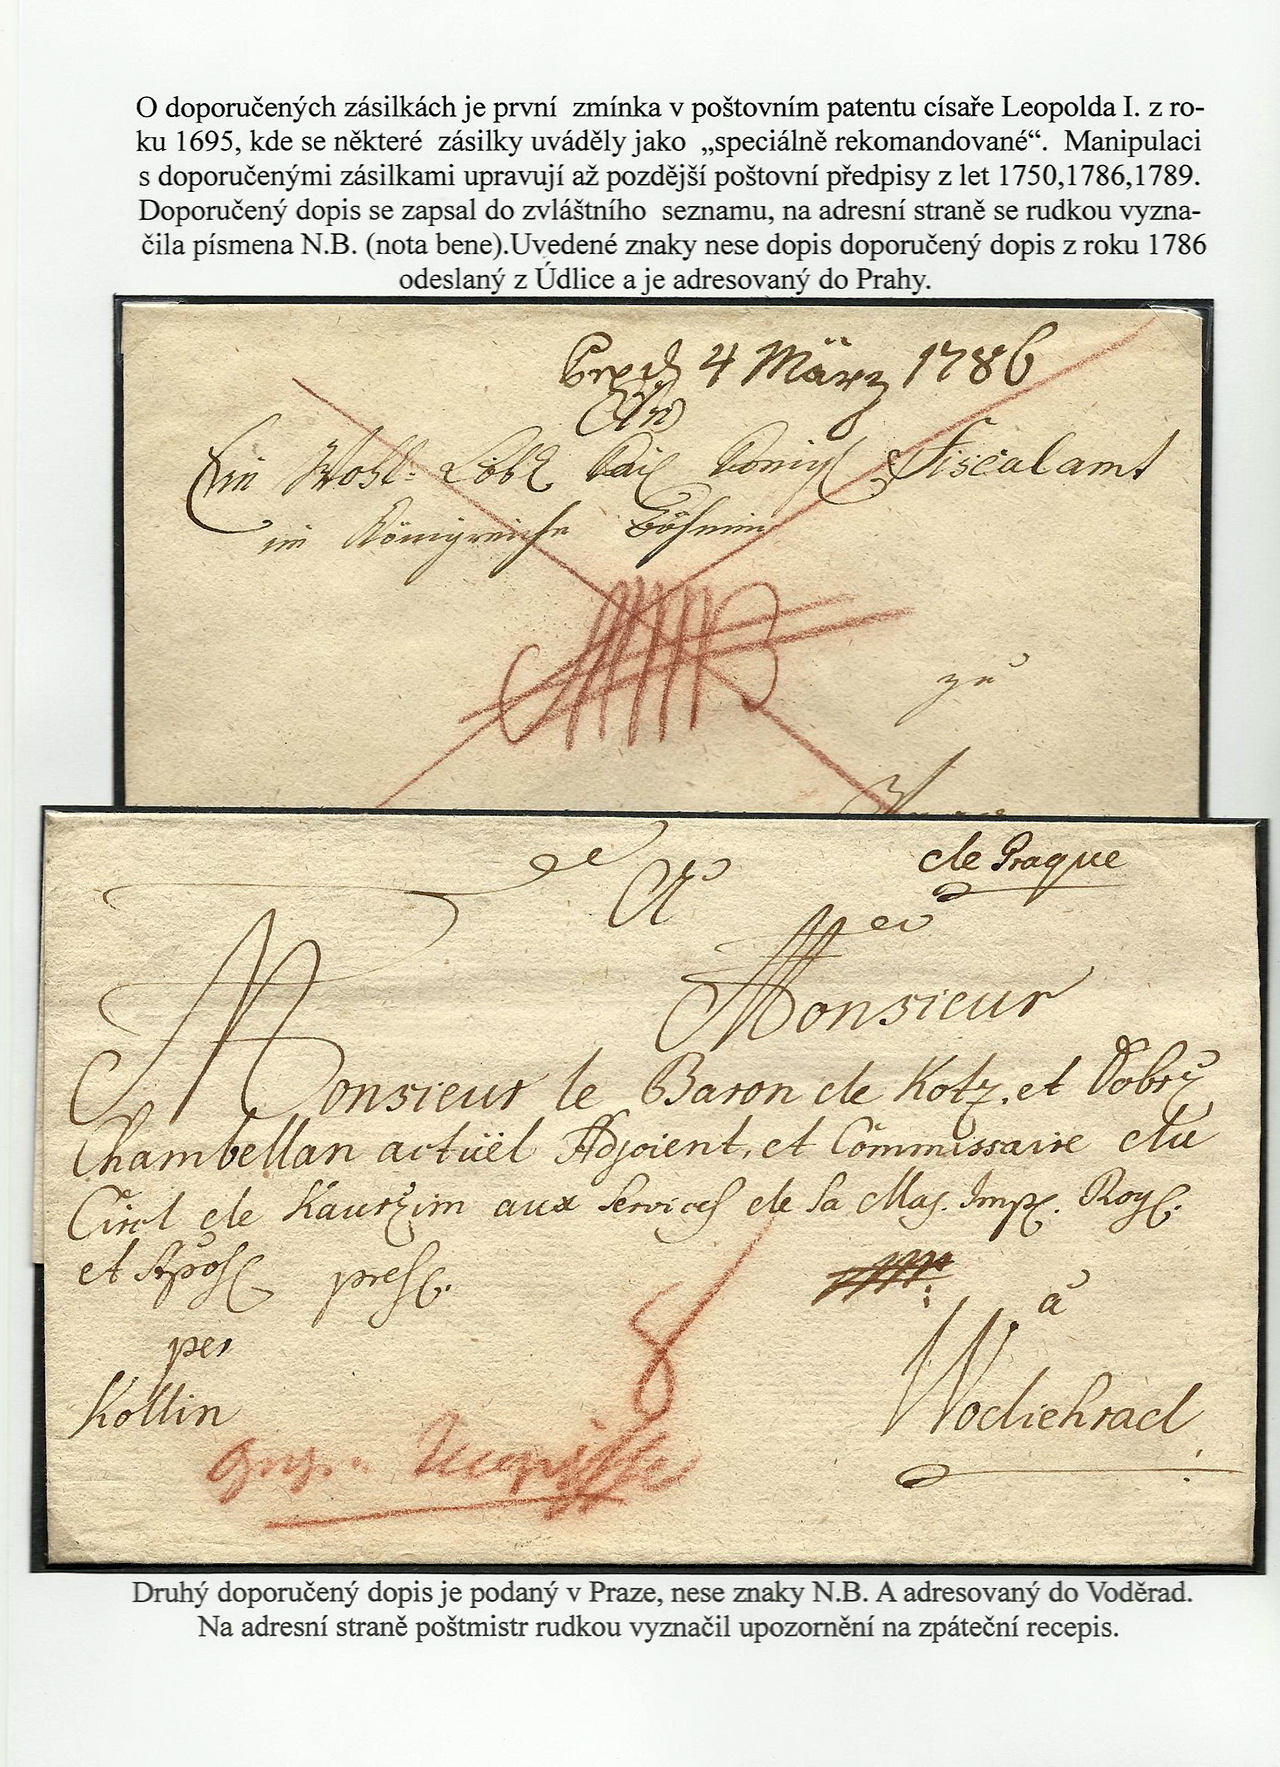 O doporučených zásilkách je první zmínka v poštovním patentu císaře Leopolda I. z ro-
ku 1695, kde se některé zásilky uváděly jako „speciálně rekomandované“. Manipulaci
s doporučenými zásilkami upravují až pozdější poštovní předpisy z let 1750,1786,1789.
Doporučený dopis se zapsal do zvláštního seznamu, na adresní straně se rudkou vyzna-
čila písmena N.B. (nota bene).Uvedené znaky nese dopis doporučený dopis z roku 1786
odeslaný z Údlice a je adresovaný do Prahy.
4 März 1786
An
Ein Wohl: Löbl Kais König Fiscalamt
im Königreiche Böhmen
zu
de Prague
A
Monsieur
Monsieur le Baron de Kotz, et Dobrz
Chambellan actuël Adjoient, et Commissaire du
Circl de Kaurzim aux services de Sa Maj. Imp. Roy.
et Apos. pres.
per
Kollin
à
Wodiehrad
8
Druhý doporučený dopis je podaný v Praze, nese znaky N.B. A adresovaný do Voděrad.
Na adresní straně poštmistr rudkou vyznačil upozornění na zpáteční recepis.